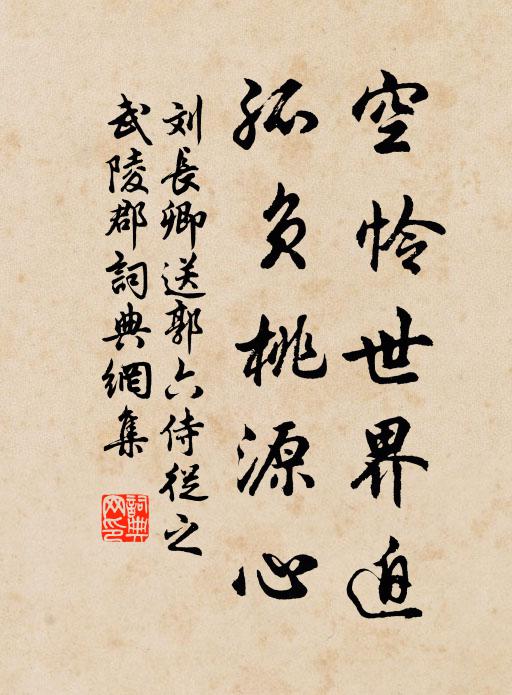 空怜世界迫
孤负桃源心
刘長卿送郭六侍從之
武陵郡詞典網集
詞典
网印